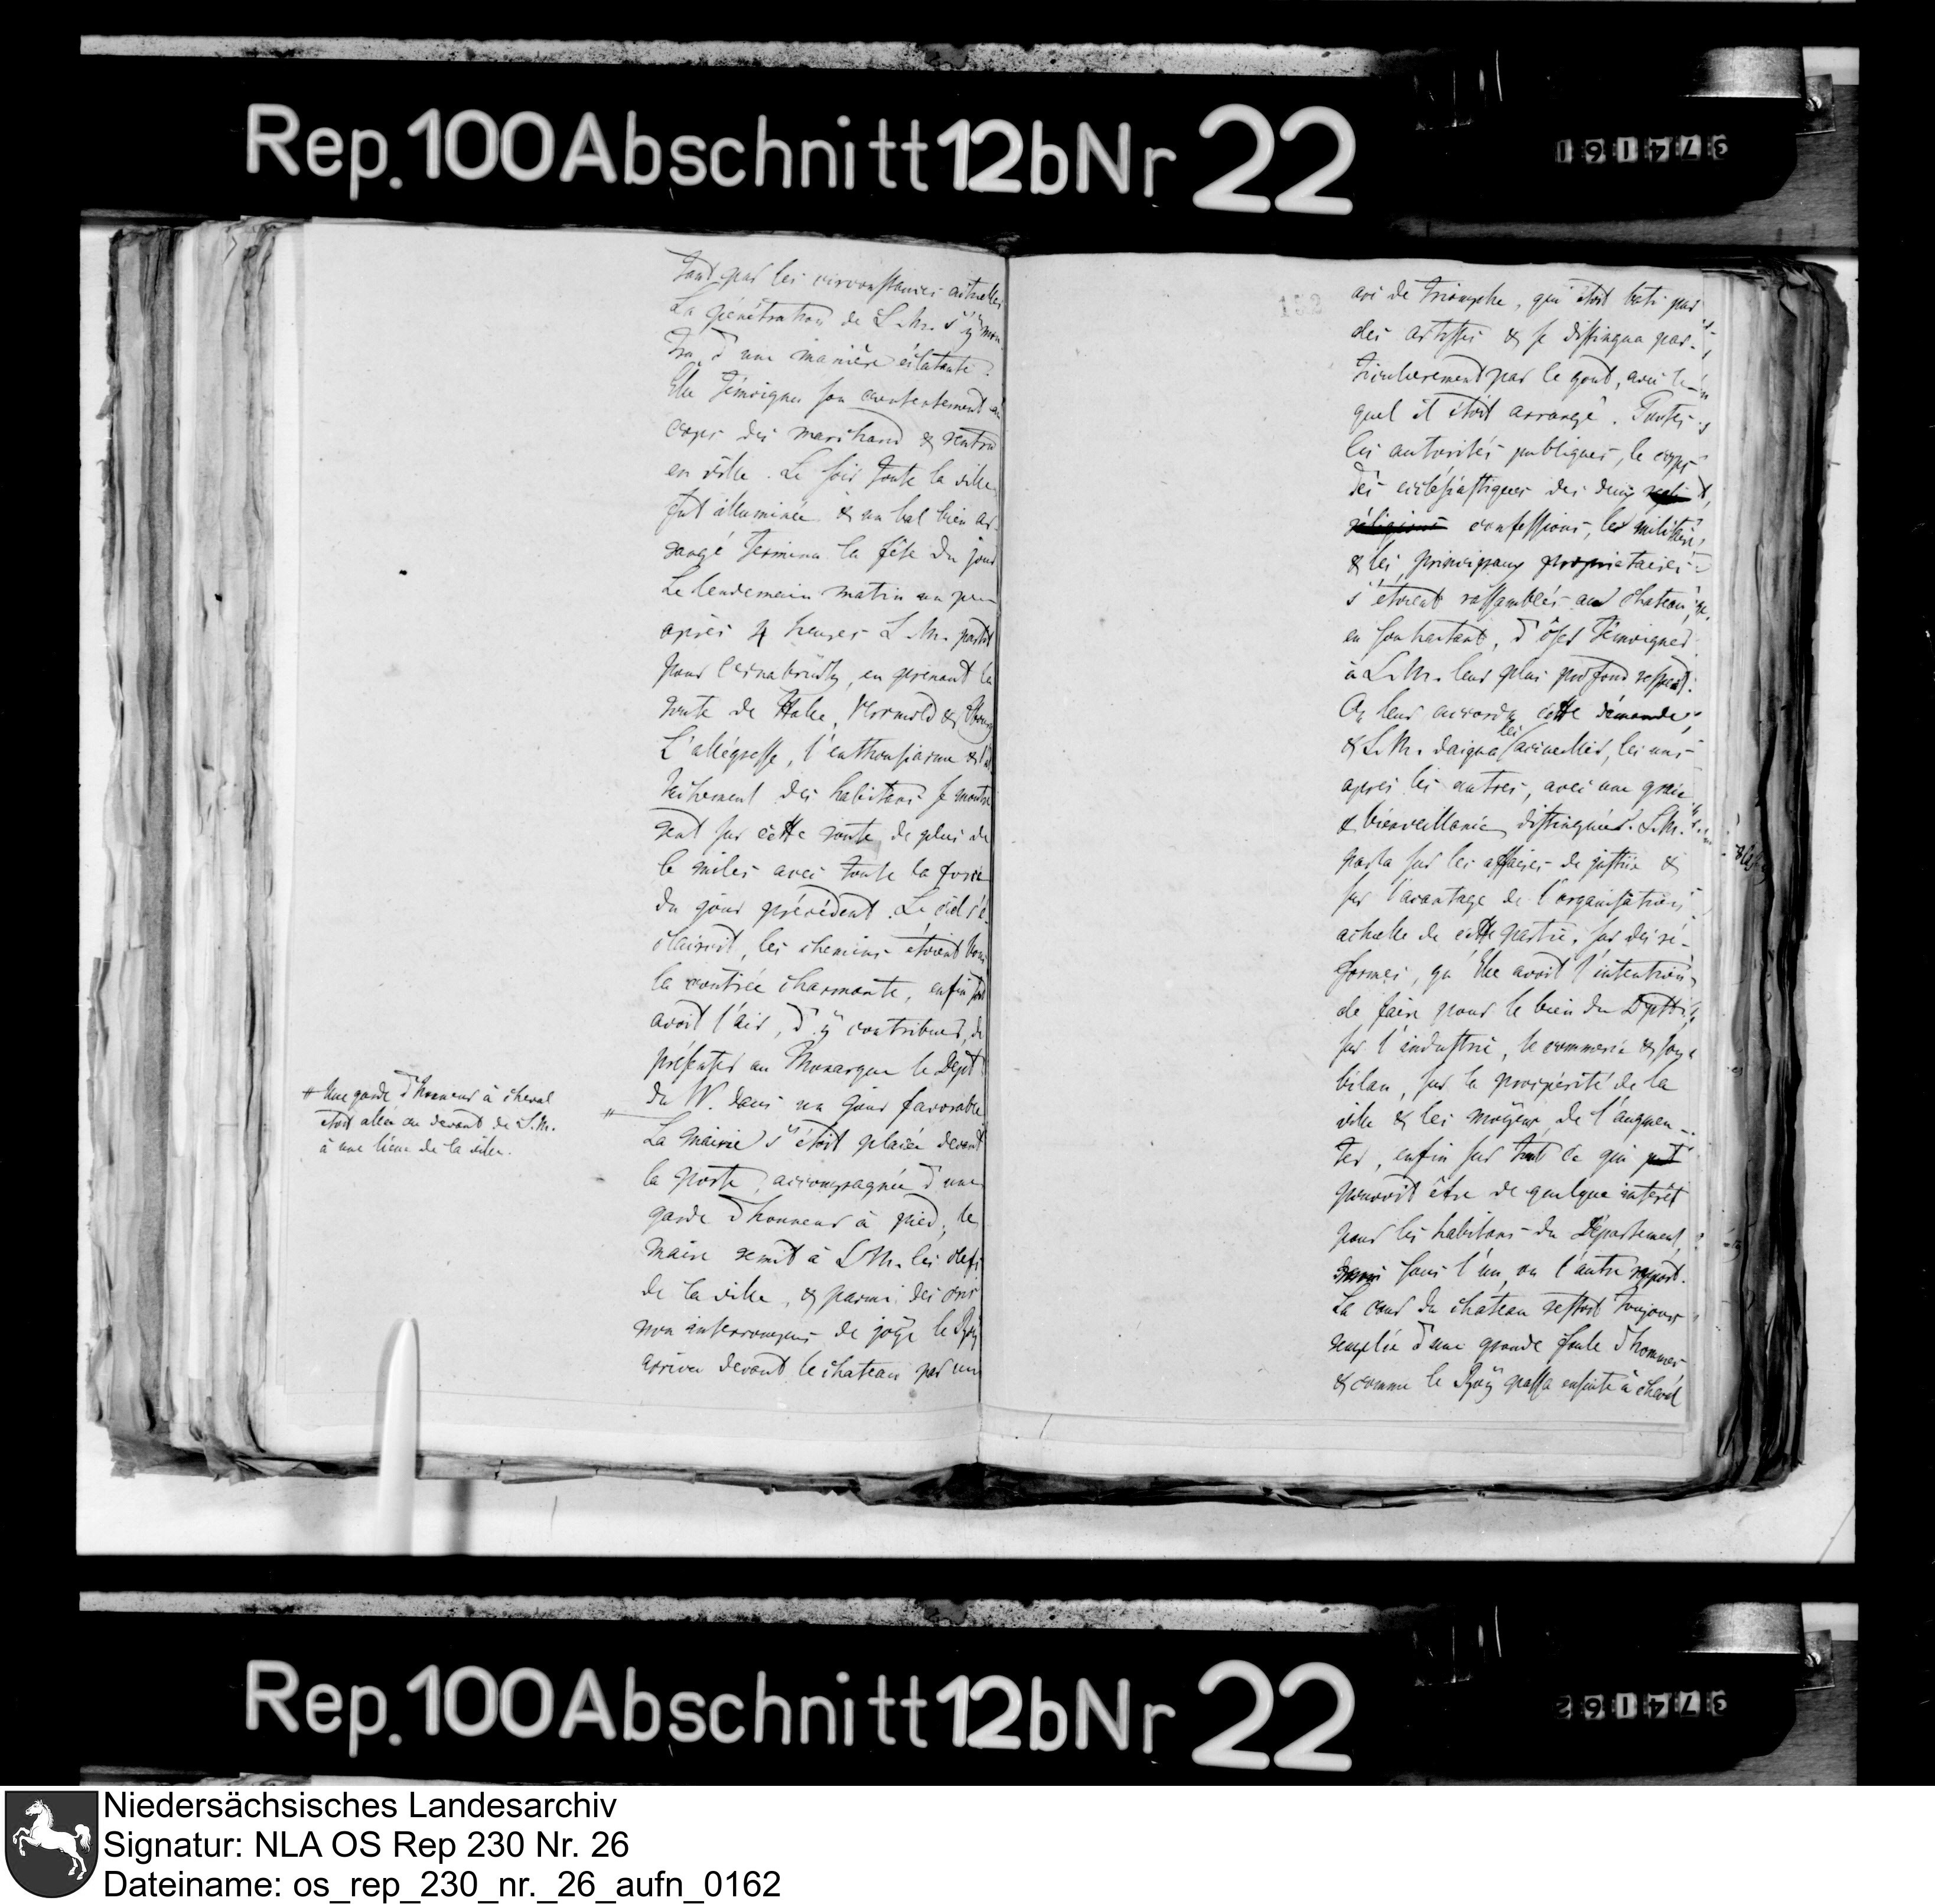 Rep. 100 Abschnitt 12b Nr 22
974161
tant par les circonstances actuelles
La pénétration de S. M. s'y mon-
tra d'une manière éclatante.
Elle témoigna son contentement au
corps des marchand & rentra
en ville. Le soir toute la ville
fut illuminée & un bal bien ar-
rangé termina la fête du jour
Le lendemain matin un peu
après 4 heures S. M. partit
pour Osnabrück, en prenant la
route de Halle, Versmold &
L'allégresse, l'enthousiasme & l'at
tachement des habitans se montre
rent sur cette route de plus de
6 miles avec toute la force
du jour précédent. Le ciel s'é-
claircit, les chemins étoient bons
la contrée charmante, enfin tout
avoit l'air, d'y contribuer, de
présenter au Monarque le Dept
du W. dans un jour favorable
# La Mairie s'étoit placée devant
la porte, accompagnée d'une
garde d'honneur à pied, le
Maire remit à S. M. les clefs
de la ville, & parmi des cris
non interrompus de joÿe le Roÿ
arriva devant le chateau par un
# Une garde d'honneur à cheval
etoit allée au devant de S. M.
à une lieue de la ville.
132
arc de triomphe, qui étoit bati par
des artistes & se distingua par-
ticulierement par le gout, avec le-
quel il étoit arrangé. Toutes
les autorités publiques, le corps
des ecclésiastiques des deux
réligions confessions, les militaires
& les principaux propriétaires
s'étoient rassemblés au chateau,
en souhaitant, d'ôser témoigner
à S. M. leur plus profond respect.
On leur accorda cette démande,
& S. M. daigna les accueillir, les uns
apres les autres, avec une grace
& bienveillance distinguées. S. M.
parla sur les affaires de justice &
sur l'avantage de l'organisation
actuelle de cette partie, sur des ré-
formes, qu'Elle avoit l'intention
de faire pour le bien du Dpt
sur l'industrie, le commerce & son
bilan, sur la prospérité de la
ville & les moÿens de l'augmen-
ter, enfin sur tout ce qui put
pouvoit être de quelque intérêt
pour les habitans du Département,
sous l'un ou l'autre raport.
La cour du chateau restoit toujours
remplie d'une grande foule d'hommes
& comme le Roÿ passa ensuite à cheval
Rep. 100 Abschnitt 12b Nr 22
974162
Niedersächsisches Landesarchiv
Signatur: NLA OS Rep 230 Nr. 26
Dateiname: os_rep_230_nr._26_aufn_0162